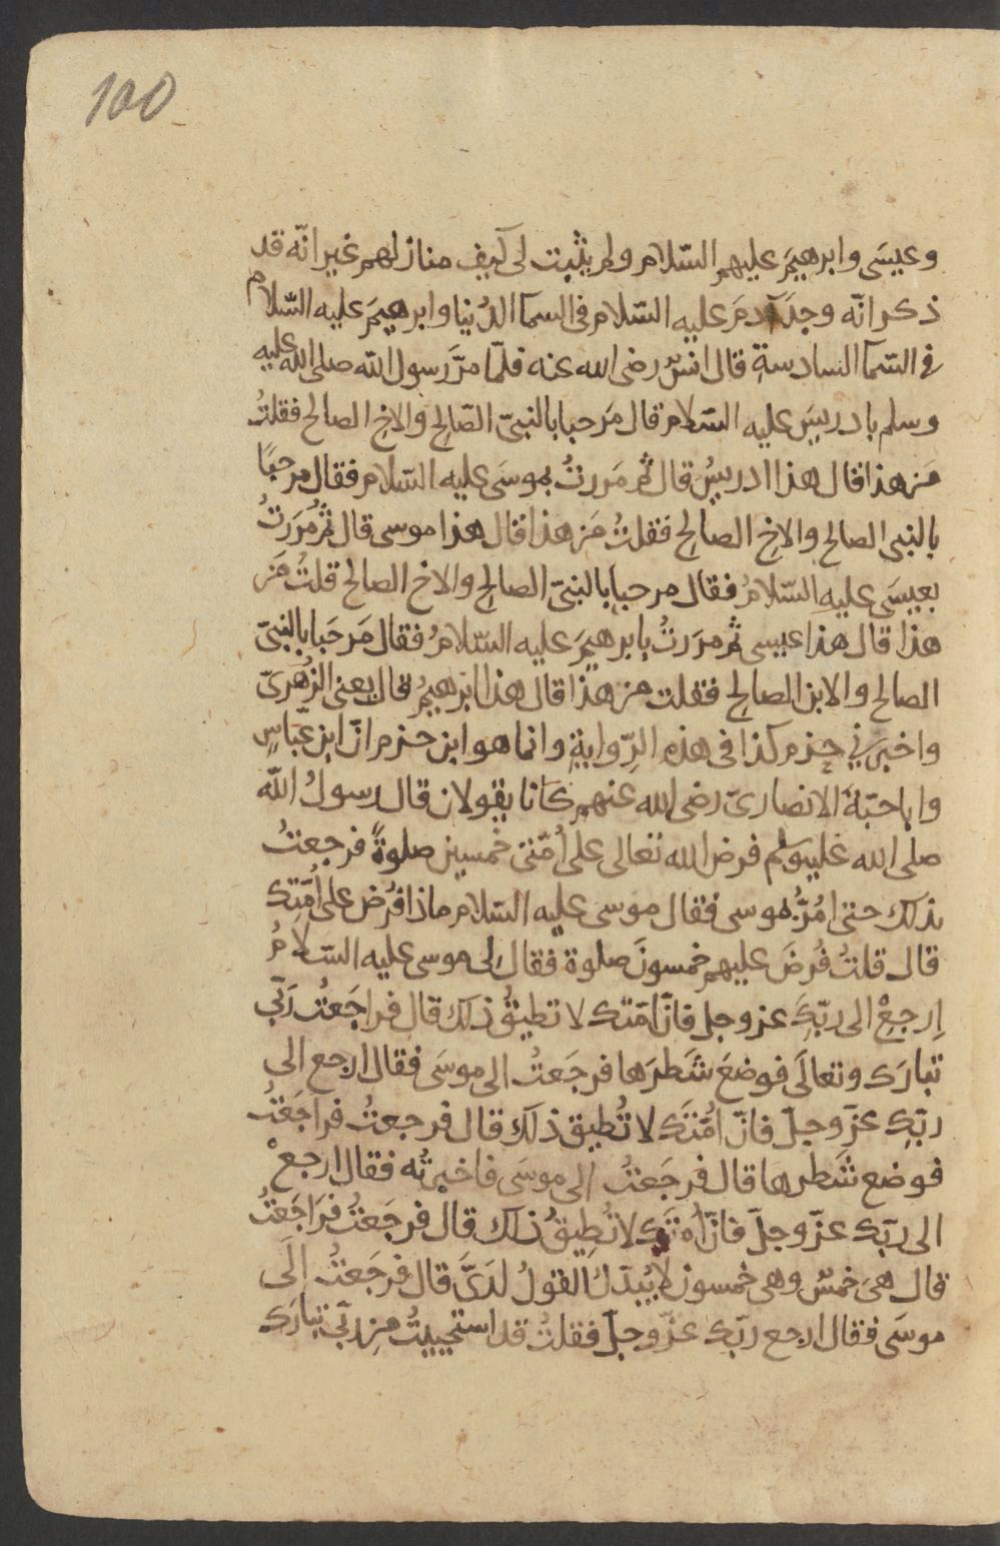 100
وعيسَى وابرهيمَ عليهم السّلام ولم يثبت لى كيف منازلهم غير انّه قد
ذكر انّه وجدَ آدمَ عليه السّلام فى السمآ الدُنيا وابرهيمَ عليه السّلام
فى السّمآ السادسةِ قال انسٌ رضى الله عنه فلمّا مرَّ رسول الله صلى الله عليه
وسلم بادريسَ عليه السّلام قال مَرحبا بالنبىّ الصّالحِ والاخِ الصالح فقلتُ
مَن هذا قال هذا ادريسُ قال ثم مَررتُ بموسَى عليه السّلام فقال مرحبًا
بالنبى الصالحِ والاخِ الصالحِ فقلتُ مَن هذا قال هذا موسى قال ثم مَررتُ
بعيسَى عليهِ السّلامُ فقال مرحبا بالنبىّ الصالحِ والاخ الصالح قلتُ مَن
هذا قال هذا عيسى ثم مررتُ بابرهيمَ عليه السّلامُ فقال مَرحَبا بالنبىّ
الصالح والابن الصالح فقلت من هذا قال هذا ابرهيمُ قال يعنى الزُهرىّ
واخبرنى حزم كذا فى هذه الرِّوايةِ وانما هو ابن حزم انّ ابن عَبّاسٍ
وابا حبّة الانصارىّ رضى الله عنهم كانا يقولان قال رسولُ الله
صلى الله عليه وسلم فرض الله تعالى على اُمّتى خمسين صلوةً فرجعتُ
بذلك حتى امُرَّ بموسى فقال موسى عليه السّلام ماذا فرُض على اُمّتِك
قال قلتُ فُرضَ عليهم خمسونَ صلوة فقال لى موسى عليه السّلامُ
اِرجِعْ الى ربّكَ عز وجل فانّ امّتك لا تطيقُ ذلك قال فراجَعتُ ربّى
تبارَك وتعالَى فوضعَ شَطرَها فرجَعتُ الى موسَى فقال ارجع الى
ربّكِ عزّ وجلّ فانّ اُمّتَك لا تُطيق ذلك قال فرجعتُ فراجَعتُ
فوضع شَطرها قال فرجَعتُ الى موسَى فاخبرتُه فقال ارجعْ
الى ربّك عزّ وجلّ فانّ اُمّتَك لا تُطِيقُ ذلك قال فرجَعتُ فرَاجَعتُ
قال هىَ خمسٌ وهى خمسون لا يُبدّلُ القولُ لدَىَّ قال فرجَعتُ الَى
موسَى فقال ارجع ربّك عزّ وجلّ فقلتُ قد استحييتُ مِن ربّى تبارَك